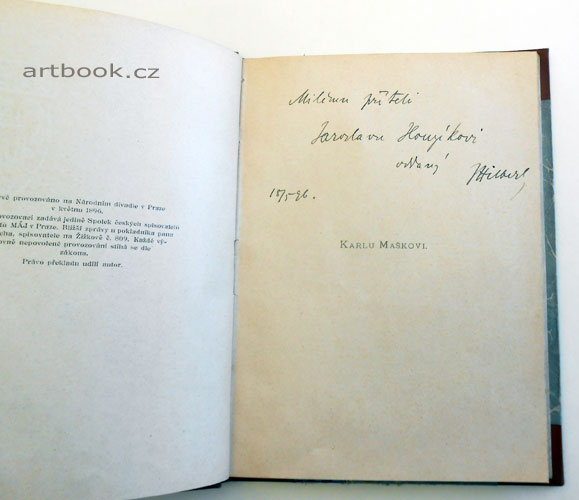 artbook.cz
vé provozováno na Národním divadle v Praze
v květnu 1896.
ovozovací zadává jedině Spolek českých spisovatelů
tů MÁJ v Praze. Bližší zprávy u pokladníka pana
eba, spisovatele na Žižkově č. 809. Každé vý-
ovně nepovolené provozování stíhá se dle
zákona.
Právo překladu udílí autor.
Milému příteli
Jaroslavu Houzíkovi
oddaný JHilbert
18/5 96.
KARLU MAŠKOVI.